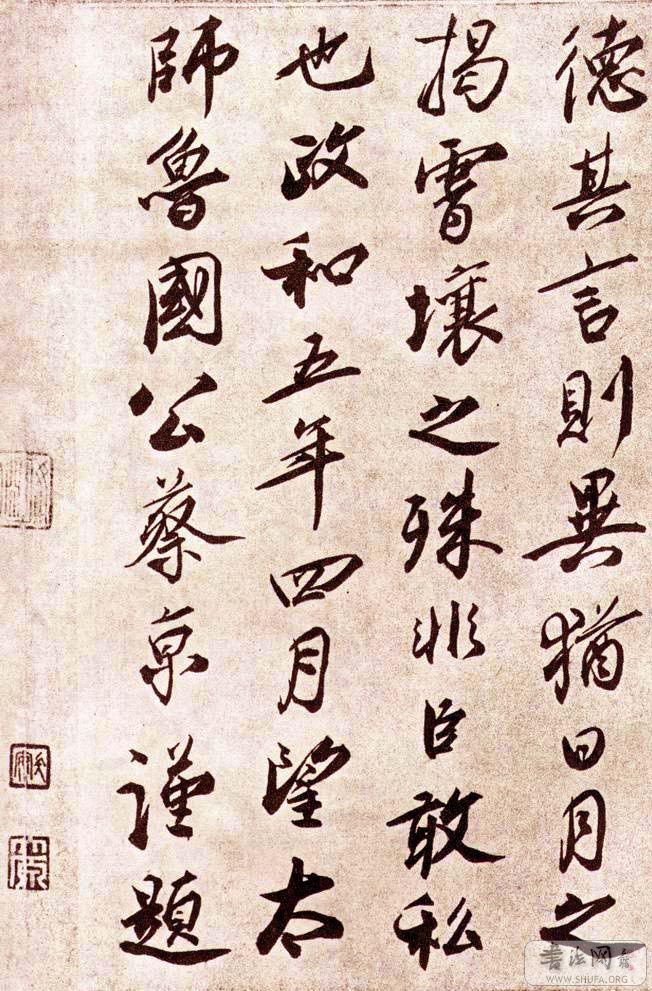 德其言則異猶日月之
揭霄壤之殊非臣敢私
也政和五年四月望太
師魯國公蔡京謹題
書法网
WWW.SHUFA.ORG